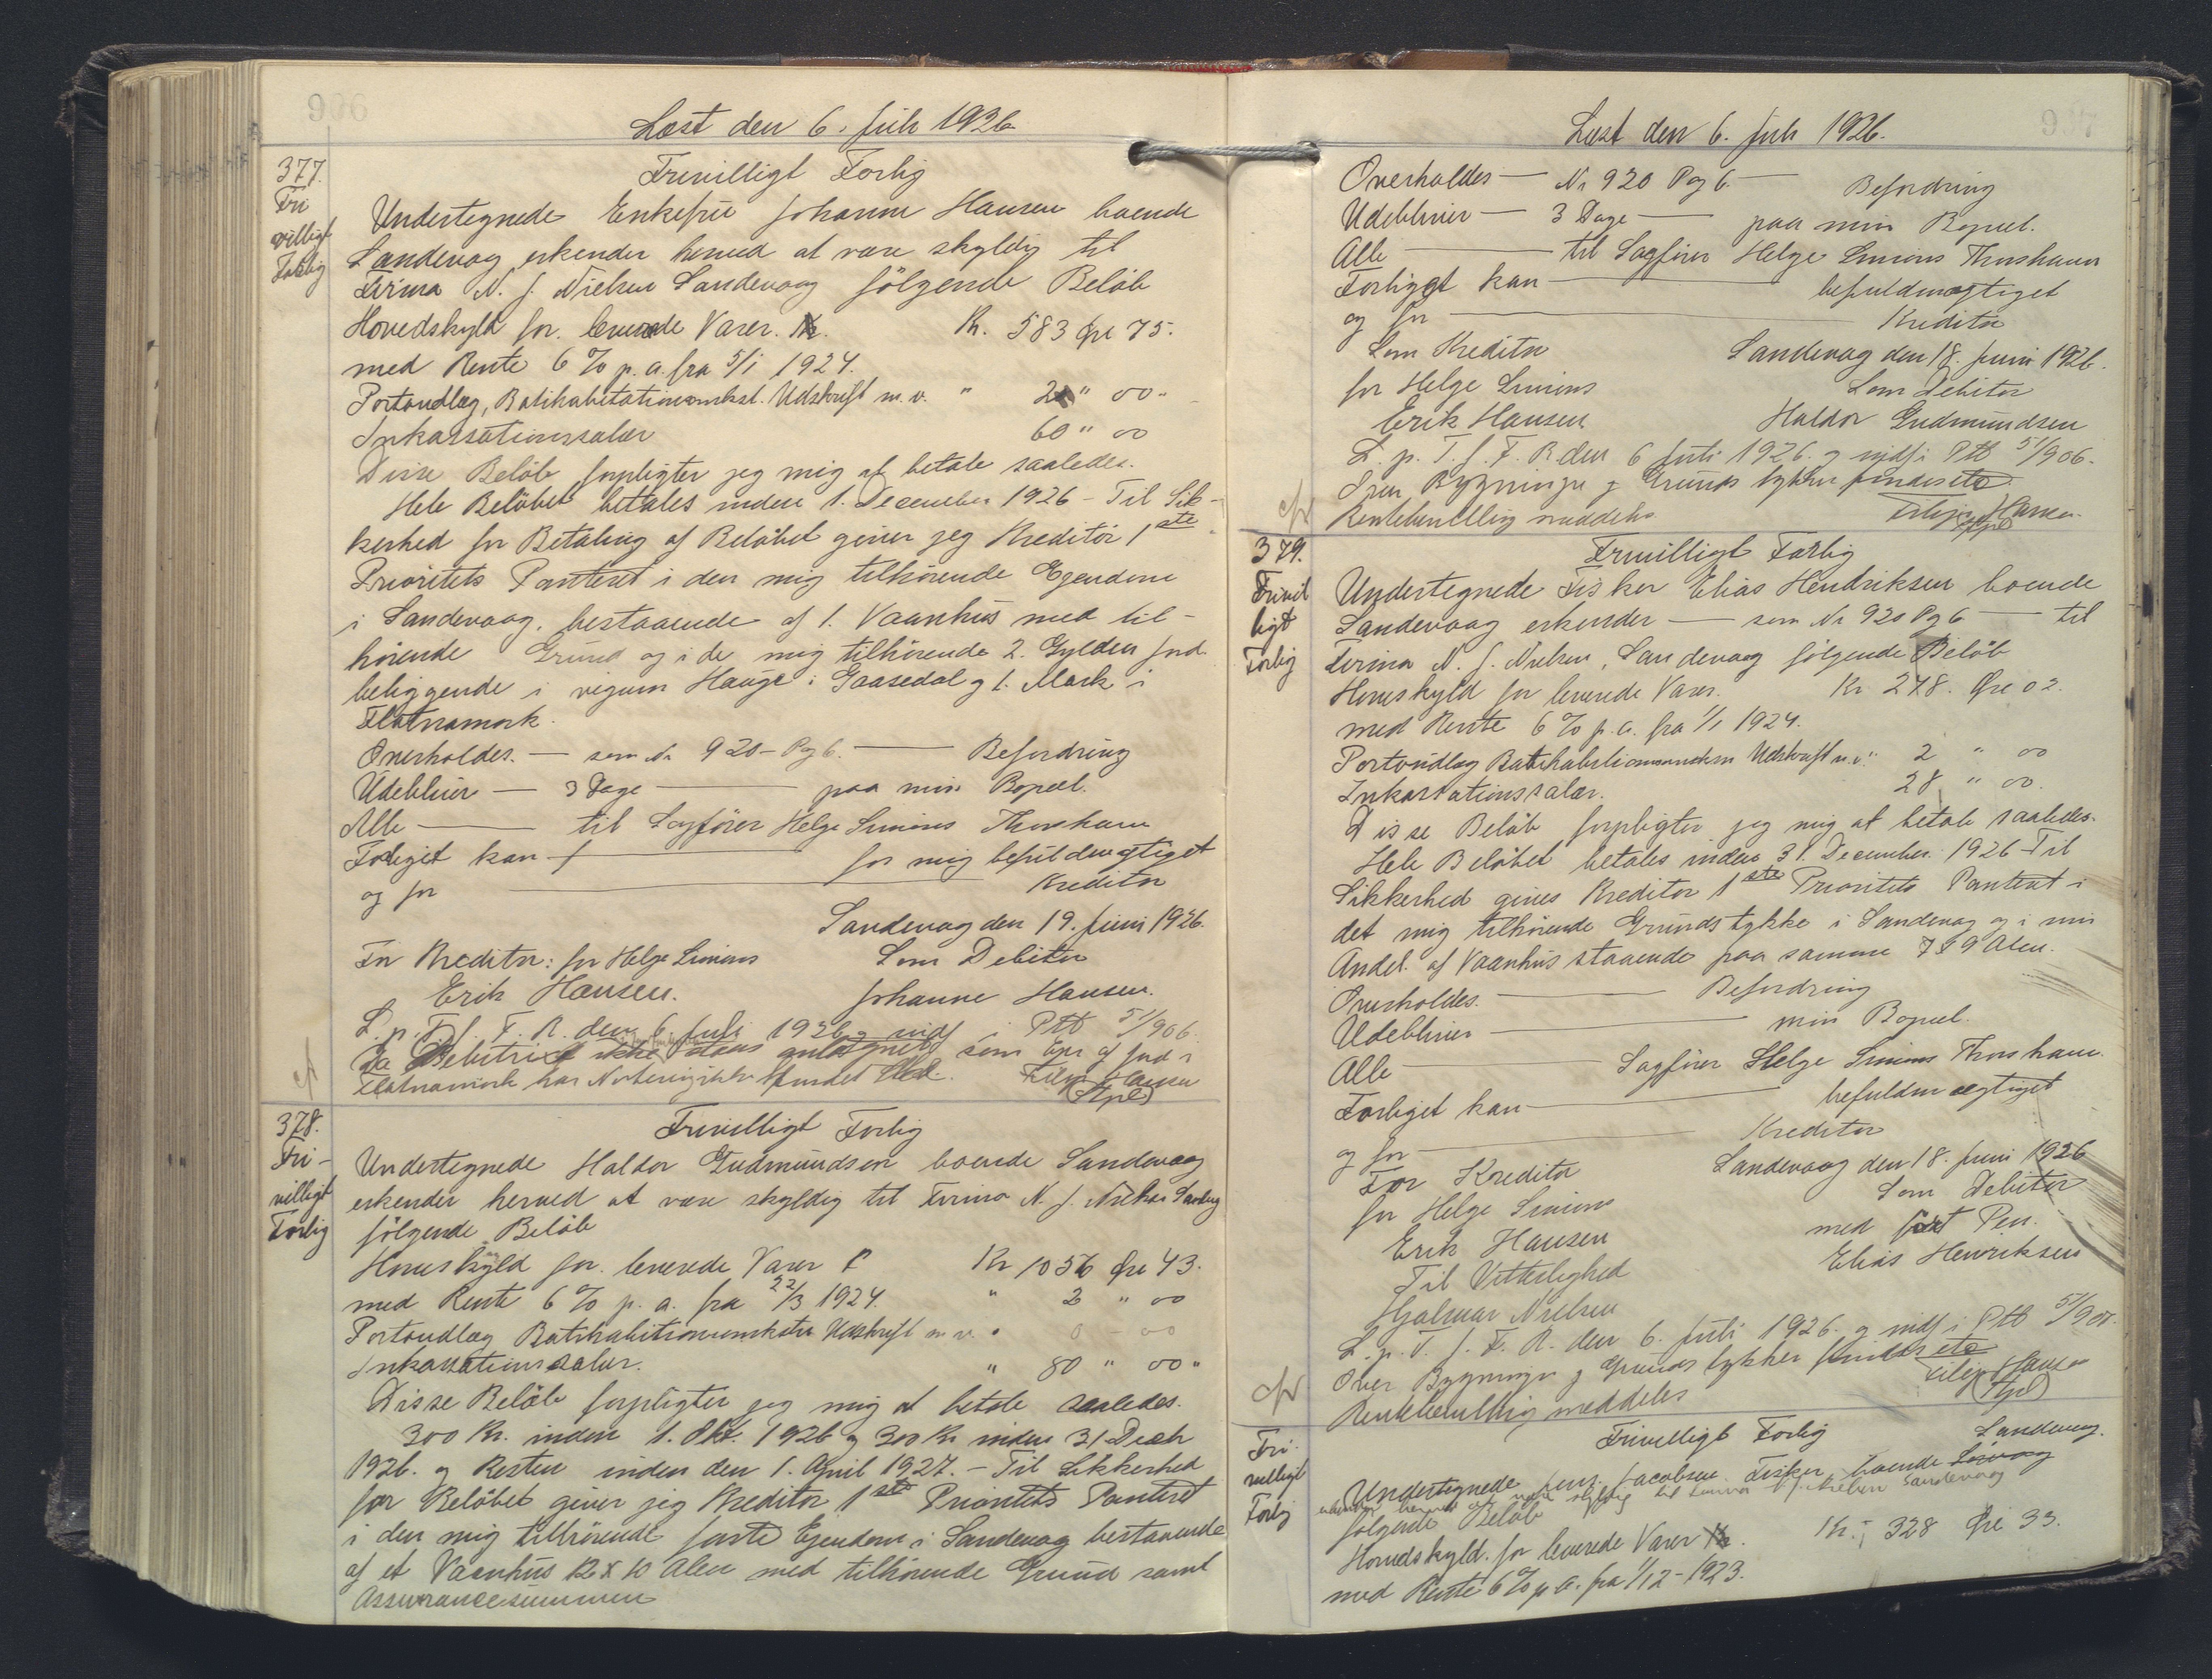 966
Læst den 6. Juli 1926
377.
Fri
villigt
Forlig
Frivilligt Forlig
Undertegnede Enkefru Johanne Hansen boende
Sandevog erkender herved at være skyldig til
Firma N. J. Nielsen Sandevaag følgende Beløb
Hovedskyld for leverede Varer. Kr. 583 Øre 75.
med Rente 6 % p. a. fra 5/1 1924.
Portoudlæg, Udskrift m. v. " 2 " 00 "
Inkassationssalær 60 " 00
Disse Beløb forpligter jeg mig at betale saaledes.
Hele Beløbet betales inden 1. December 1926 - Til Sik-
kerhed for Betaling af Beløbet giver jeg Kreditor 1ste
Prioritets Panteret i den mig tilhørende Ejendom
i Sandevaag, bestaaende af 1. Vaanhus med til-
hørende Grund og i de mig tilhørende 2. Gylden Jord
beliggende i Hauge i Gaasedal og 1. Mark i
Flatnamork.
Overholdes. — som Nr 920 - Pag 6. — Befordring
Udebliver — 3 Dage — paa min Bopæl.
Alle — til Sagfører Helge Simons Thorshavn
Forliget kan — for mig befuldmægtiget
og for — Kreditor
Sandevag den 19. Juni 1926.
For Kreditor: for Helge Simons Som Debitor
Erik Hansen. Johanne Hansen.
L. p. T. f. F. R. den 6. Juli 1926 og indf i Ptb 51/906.
Da Debitrix ikke staar som Ejer af Jord i
Flatnamork har
Hansen
(Stpl)
378.
Fri-
villigt
Forlig
Frivilligt Forlig
Undertegnede Haldor Gudmundsen boende Sandevaag
erkender herved at være skyldig til Firma N. J. Nielsen Sandevag
følgende Beløb
Hovedskyld for leverede Varer Kr 1056 Øre 43.
med Rente 6 % p. a. fra 22/3 1924. " 2 " 00
Portoudlæg Udskrift m. v.
Inkassationssalær. " 80 " 00 "
Disse Beløb forpligter jeg mig at betale saaledes.
300 Kr. inden 1. Okt. 1926 og 300 Kr inden 31 Decb
1926. og Resten inden den 1. April 1927. - Til Sikkerhed
for Beløbet giver jeg Kreditor 1ste Prioritets Panteret
i den mig tilhørende faste Ejendom i Sandevag bestaaende
af et Vaanhus 12 x 10 Alen med tilhørende Grund samt
Assurancesummen
967
Læst den 6. Juli 1926.
Overholdes — Nr 920 Pag 6. — Befordring
Udebliver — 3 Dage — paa min Bopæl.
Alle — til Sagfører Helge Simons Thorshavn
Forliget kan — befuldmægtiget
og for — Kreditor
Som Kreditor Sandevag den 18. Juni 1926.
for Helge Simons Som Debitor
Erik Hansen Haldor Gudmundsen
L. p. T. f. F. R. den 6 Juli 1926. og indf i Ptb 51/906.
Over Bygninger og Grundstykker findes
meddeles Hansen.
(Stpl)
379.
Frivil
ligt
Forlig
Frivilligt Forlig
Undertegnede Fisker Elias Hendriksen boende
Sandevaag erkender — som Nr 920 Pg 6 — til
Firma N. J. Nielsen, Sandevaag følgende Beløb
Hovedskyld for leverede Varer. Kr 278. Øre 02.
med Rente 6 % p. a. fra 1/1 1924.
Portoudlæg Udskrift m. v. " 2 " 00
Inkassationssalær. 28 " 00.
Disse Beløb forpligter jeg mig at betale saaledes.
Hele Beløbet betales inden 31. December 1926 - Til
Sikkerhed gives Kreditor 1ste Prioritets Panteret i
det mig tilhørende Grundstykke i Sandevag og i min
Andel af Vaanhus staaende paa samme 7 x 9 Alen.
Overholdes. — Befordring
Udebliver — min Bopæl.
Alle — Sagfører Helge Simons Thorshavn.
Forliget kan — befuldmægtiget
og for — Kreditor
For Kreditor Sandevaag den 18. Juni 1926
for Helge Simons Som Debitor
Erik Hansen med ført Pen.
Til Vitterlighed Elias Henriksen
Hjalmar Nielsen
L. p. T. f. F. R. den 6. Juli 1926. og indf i Ptb
Over Bygninger og Grundstykker findes
meddeles
(Stpl)
Fri-
villigt
Forlig
Frivilligt Forlig
Sandevag.
Undertegnede Jens Jacobsen Fisker boende
erkender herved at være skyldig til Firma N. J. Nielsen Sandevaag
følgende Beløb
Hovedskyld. for leverede Varer Kr. 328 Øre 33.
med Rente 6 % p. a. fra 1/12 - 1923.